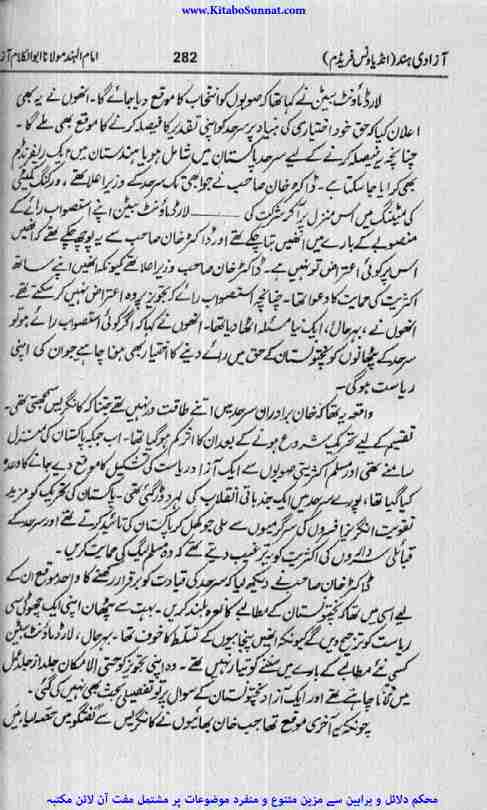 www.KitaboSunnat.com
آزادی ہند (انڈیا ونس فریڈم) 282 امام الہند مولانا ابوالکلام آز
لارڈ ماؤنٹ بیٹن نے کہا تھا کہ صوبوں کو انتخاب کا موقع دیا جائے گا۔ انھوں نے یہ بھی
اعلان کیا کہ حق خود اختیاری کی بنیاد پر سرحد کو اپنی تقدیر کا فیصلہ کرنے کا موقع بھی ملے گا۔
چنانچہ یہ فیصلہ کرنے کے لیے سرحد پاکستان میں شامل ہو یا ہندستان میں ایک ریفرنڈم
بھی کرایا جا سکتا ہے۔ ڈاکٹر خان صاحب نے جو ابھی تک سرحد کے وزیر اعلا تھے، ورکنگ کمیٹی
کی میٹنگ میں اس منزل پر آکر شرکت کی ـــــــ لارڈ ماؤنٹ بیٹن اپنے استصواب رائے کے
منصوبے کے بارے میں انھیں بتا چکے تھے اور ڈاکٹر خان صاحب سے یہ پوچھ چکے تھے کہ انھیں
اس پر کوئی اعتراض تو نہیں ہے۔ ڈاکٹر خان صاحب وزیر اعلا تھے کیونکہ انھیں اپنے ساتھ
اکثریت کی حمایت کا دعوا تھا۔ چنانچہ استصواب رائے کی تجویز پر وہ اعتراض نہیں کر سکتے تھے۔
انھوں نے، بہرحال، ایک نیا مسئلہ اٹھا دیا تھا۔ انھوں نے کہا کہ اگر کوئی استصواب رائے ہو تو
سرحد کے پٹھانوں کو پختونستان کے حق میں رائے دینے کا اختیار بھی ہونا چاہیے جو ان کی اپنی
ریاست ہوگی۔
واقعہ یہ تھا کہ خان برادران سرحد میں اتنے طاقت ور نہیں تھے جتنا کہ کانگریس سمجھتی تھی۔
تقسیم کے لیے تحریک شروع ہونے کے بعد ان کا اثر کم ہو گیا تھا۔ اب جبکہ پاکستان کی منزل
سامنے تھی اور مسلم اکثریتی صوبوں سے ایک آزاد ریاست کی تشکیل کا موقع دیے جانے کا وعدہ
کیا گیا تھا، پورے سرحد میں ایک جذباتی انقلاب کی لہر دوڑ گئی تھی۔ پاکستان کی تحریک کو مزید
تقویت انگریز افسروں کی سرگرمیوں سے ملی جو کھل کر پاکستان کی تائید کرتے تھے اور سرحد کے
قبائلی سرداروں کی اکثریت کو یہ ترغیب دیتے تھے کہ وہ مسلم لیگ کی حمایت کریں۔
ڈاکٹر خان صاحب نے دیکھ لیا کہ سرحد کی قیادت کو برقرار رکھنے کا واحد موقع ان کے
لیے اسی میں تھا کہ پختونستان کے مطالبے کا نعرہ بلند کریں۔ بہت سے پٹھان اپنی ایک چھوٹی سی
ریاست کو ترجیح دیں گے کیونکہ انھیں پنجابیوں کے تسلط کا خوف تھا۔ بہرحال، لارڈ ماؤنٹ بیٹن
کسی نئے مطالبے کے بارے میں سننے کو تیار نہیں تھے۔ وہ اپنی تجویز کو حتی الامکان جلد از جلد عمل
میں لانا چاہتے تھے اور ایک آزاد پختونستان کے سوال پر تو تفصیلی بحث بھی نہیں کی گئی۔
چونکہ یہ آخری موقع تھا جب خان بھائیوں نے کانگریس سے گفتگو میں حصہ لیا، میں
محکم دلائل و براہین سے مزین متنوع و منفرد موضوعات پر مشتمل مفت آن لائن مکتبہ